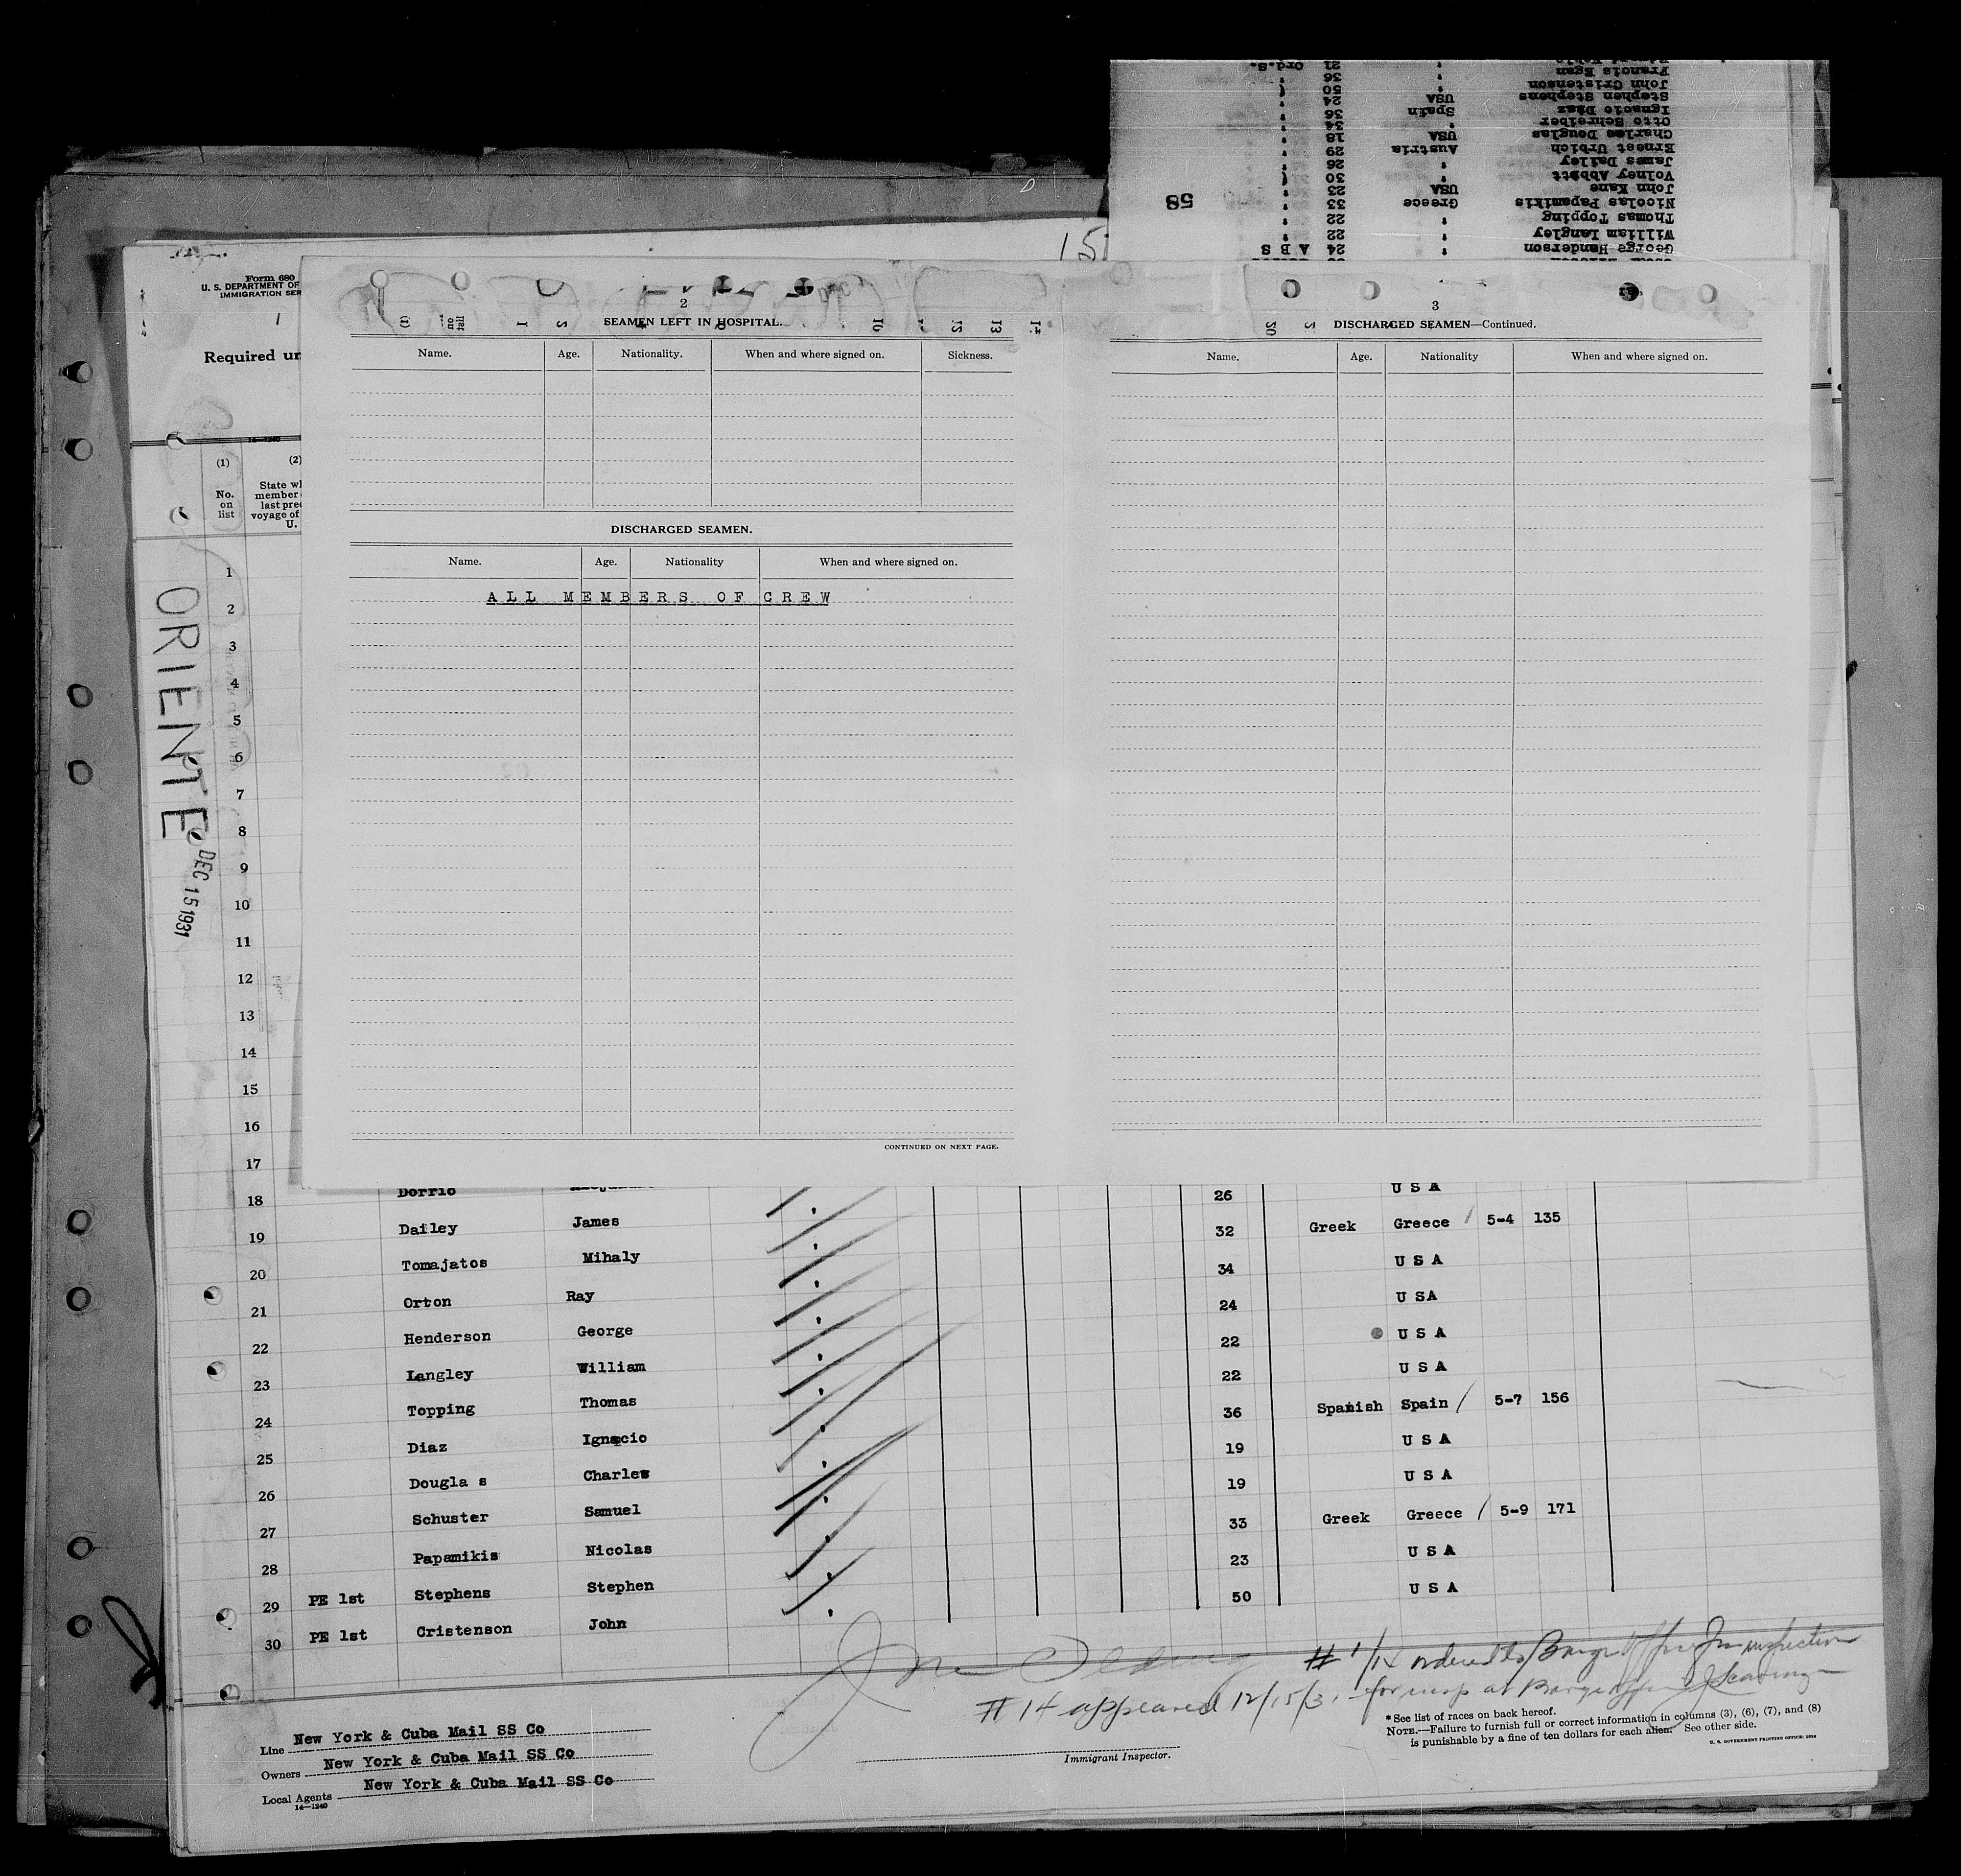 58
George Henderson 24 A B S
William Langley 22
Thomas Topping 22
Nicolas Papamikis Greece 33
John Kane USA 23
Volney Abbott 30
James Dailey 26
Ernest Urbich Austria 29
Charles Douglas USA 18
Otto Schreiber 34
Ignacio Diaz Spain 36
Stephen Stephens USA 24
John Cristenson 50
Francis Egan 36
21 Ord.S.
15
Form 680
U. S. DEPARTMENT OF
IMMIGRATION SER
Required un
14—1240
(1) (2)
No. on list
State wh
member
last prec
voyage of
U.
ORIENTE
DEC 15 1931
2
SEAMEN LEFT IN HOSPITAL.
Name. Age. Nationality. When and where signed on. Sickness.
DISCHARGED SEAMEN.
Name. Age. Nationality When and where signed on.
ALL MEMBERS OF CREW
CONTINUED ON NEXT PAGE.
3
DISCHARGED SEAMEN—Continued.
Name. Age. Nationality When and where signed on.
1
2
3
4
5
6
7
8
9
10
11
12
13
14
15
16
17
18 Dorrio 26 U S A
19 Dailey James 32 Greek Greece / 5-4 135
20 Tomajatos Mihaly 34 U S A
21 Orton Ray 24 U SA
22 Henderson George 22 U S A
23 Langley William 22 U S A
24 Topping Thomas 36 Spanish Spain / 5-7 156
25 Diaz Ignacio 19 U S A
26 Dougla s Charles 19 U S A
27 Schuster Samuel 33 Greek Greece / 5-9 171
28 Papamikis Nicolas 23 U S A
29 PE 1st Stephens Stephen 50 U S A
30 PE 1st Cristenson John
# 1/14 ordered to Barge Office for inspection
# 14 appeared 12/15/31 for insp at Barge Office
Immigrant Inspector.
Line New York & Cuba Mail SS Co
Owners New York & Cuba Mail SS Co
Local Agents New York & Cuba Mail SS Co
14—1240
* See list of races on back hereof.
NOTE.—Failure to furnish full or correct information in columns (3), (6), (7), and (8)
is punishable by a fine of ten dollars for each alien. See other side.
U. S. GOVERNMENT PRINTING OFFICE: